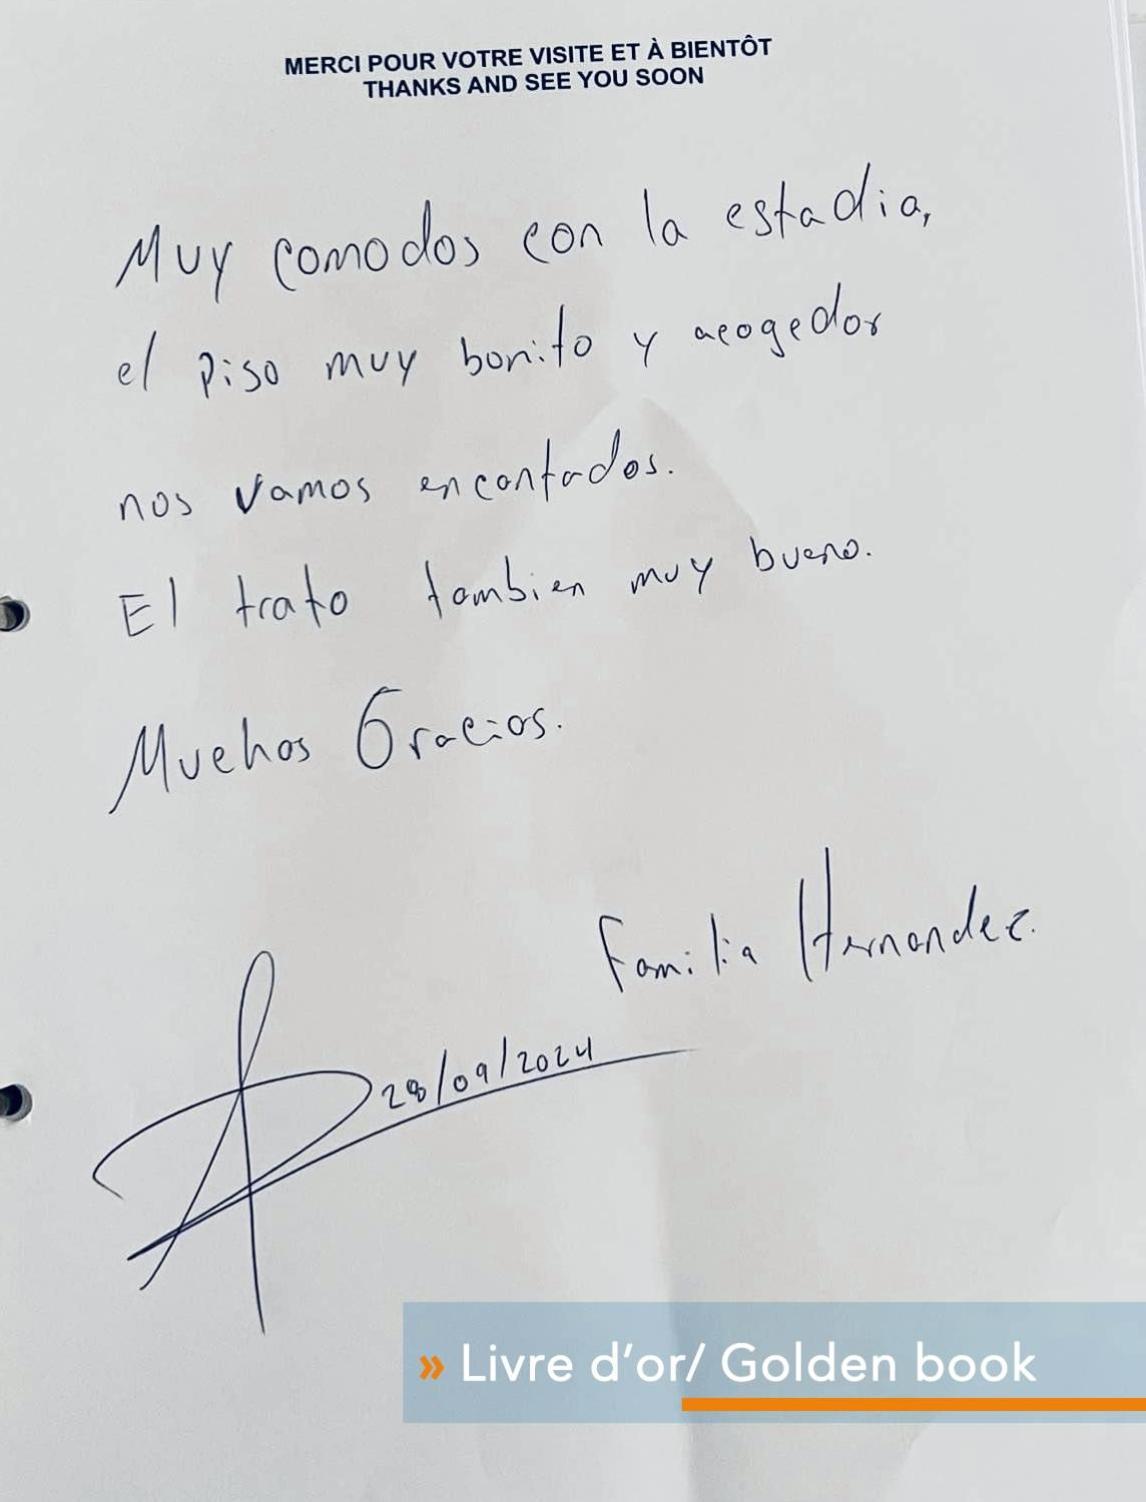 MERCI POUR VOTRE VISITE ET À BIENTÔT
THANKS AND SEE YOU SOON
Muy comodos con la estadia,
el piso muy bonito y acogedor
nos vamos encantados.
El trato tambien muy bueno.
Muchas Gracias.
Familia Hernandez.
28/09/2024
» Livre d'or/ Golden book